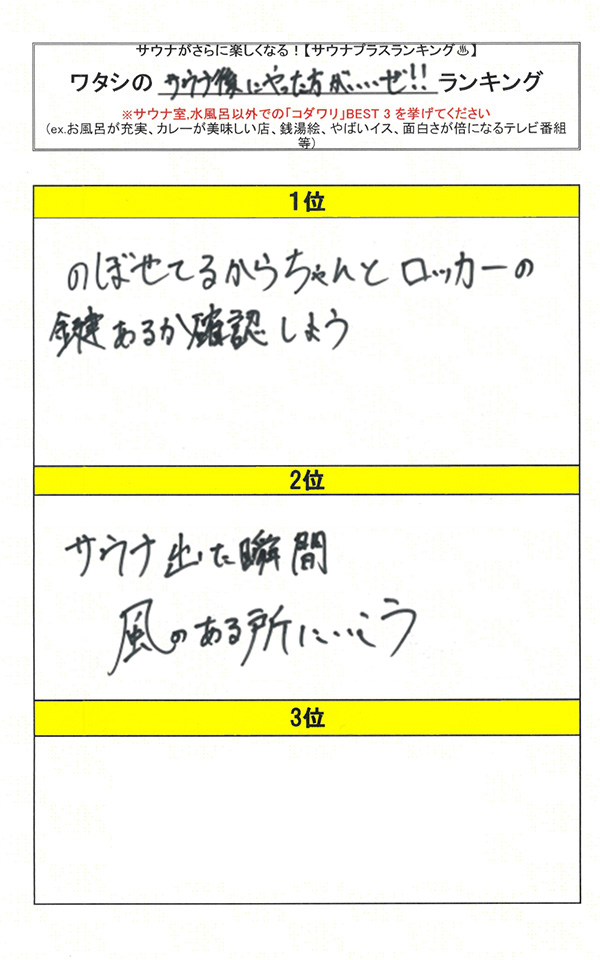 サウナがさらに楽しくなる！【サウナプラスランキング♨】
ワタシの サウナ後にやった方がいいぜ!! ランキング
※サウナ室,水風呂以外での「コダワリ」BEST 3 を挙げてください
(ex.お風呂が充実、カレーが美味しい店、銭湯絵、やばいイス、面白さが倍になるテレビ番組
等)
1位
のぼせてるからちゃんとロッカーの
鍵あるか確認しよう
2位
サウナ出た瞬間
風のある所にいこう
3位